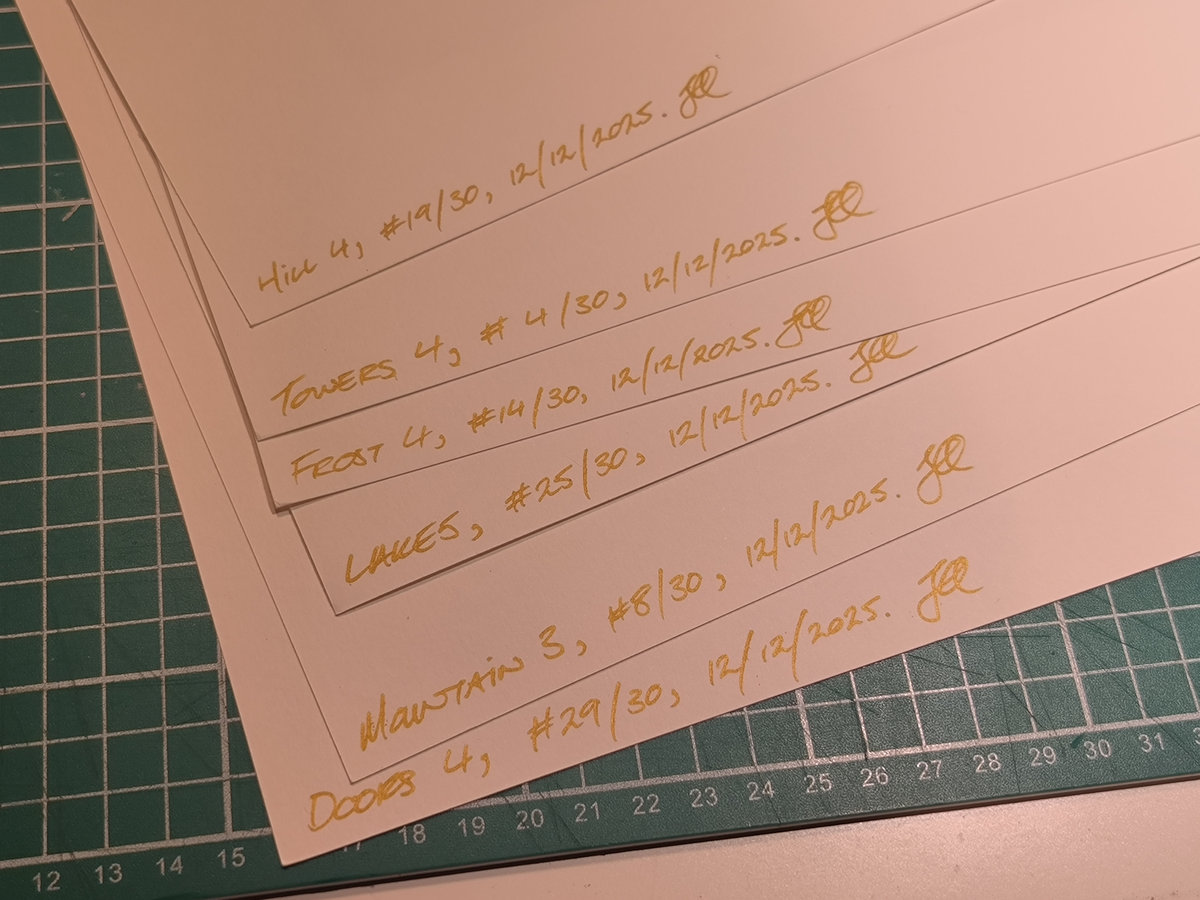 Hill 4, #19/30, 12/12/2025.
TOWERS 4, # 4/30, 12/12/2025.
FROST 4, #14/30, 12/12/2025.
LAKES, #25/30, 12/12/2025.
MOUNTAIN 3, #8/30, 12/12/2025.
DOORS 4, #29/30, 12/12/2025.
12 13 14 15 17 18 19 20 21 22 23 24 25 26 27 28 29 30 31